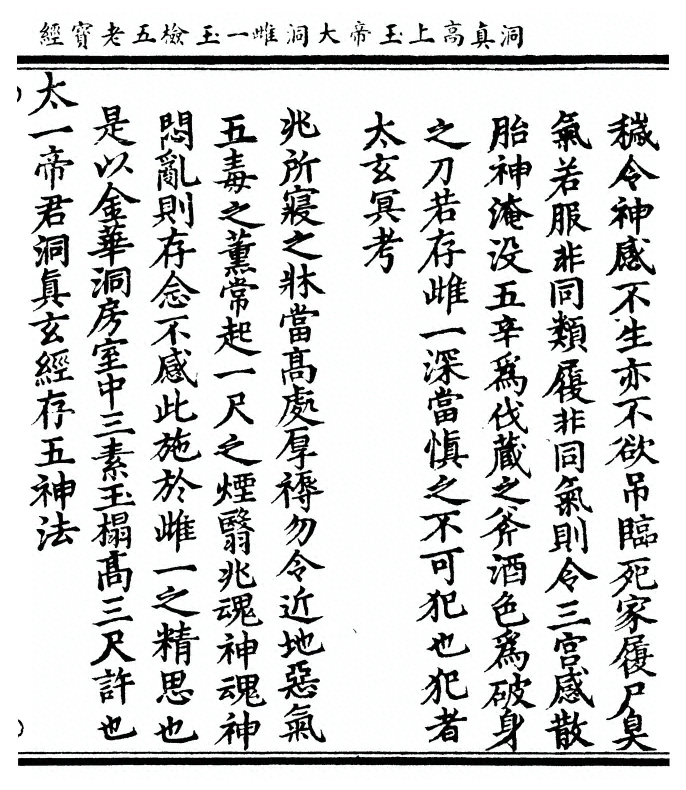 洞真高上玉帝大洞雌一玉檢五老寶經
穢令神感不生亦不欲吊臨死家履尸臭
氣若服非同類履非同氣則令三宮感散
胎神淹没五辛為伐藏之斧酒色為破身
之刀若存雌一深當慎之不可犯也犯者
太玄冥考
兆所寢之牀當高處厚褥勿令近地惡氣
五毒之薰常起一尺之煙翳兆魂神魂神
悶亂則存念不感此施於雌一之精思也
是以金華洞房室中三素玉榻高三尺許也
太一帝君洞真玄經存五神法